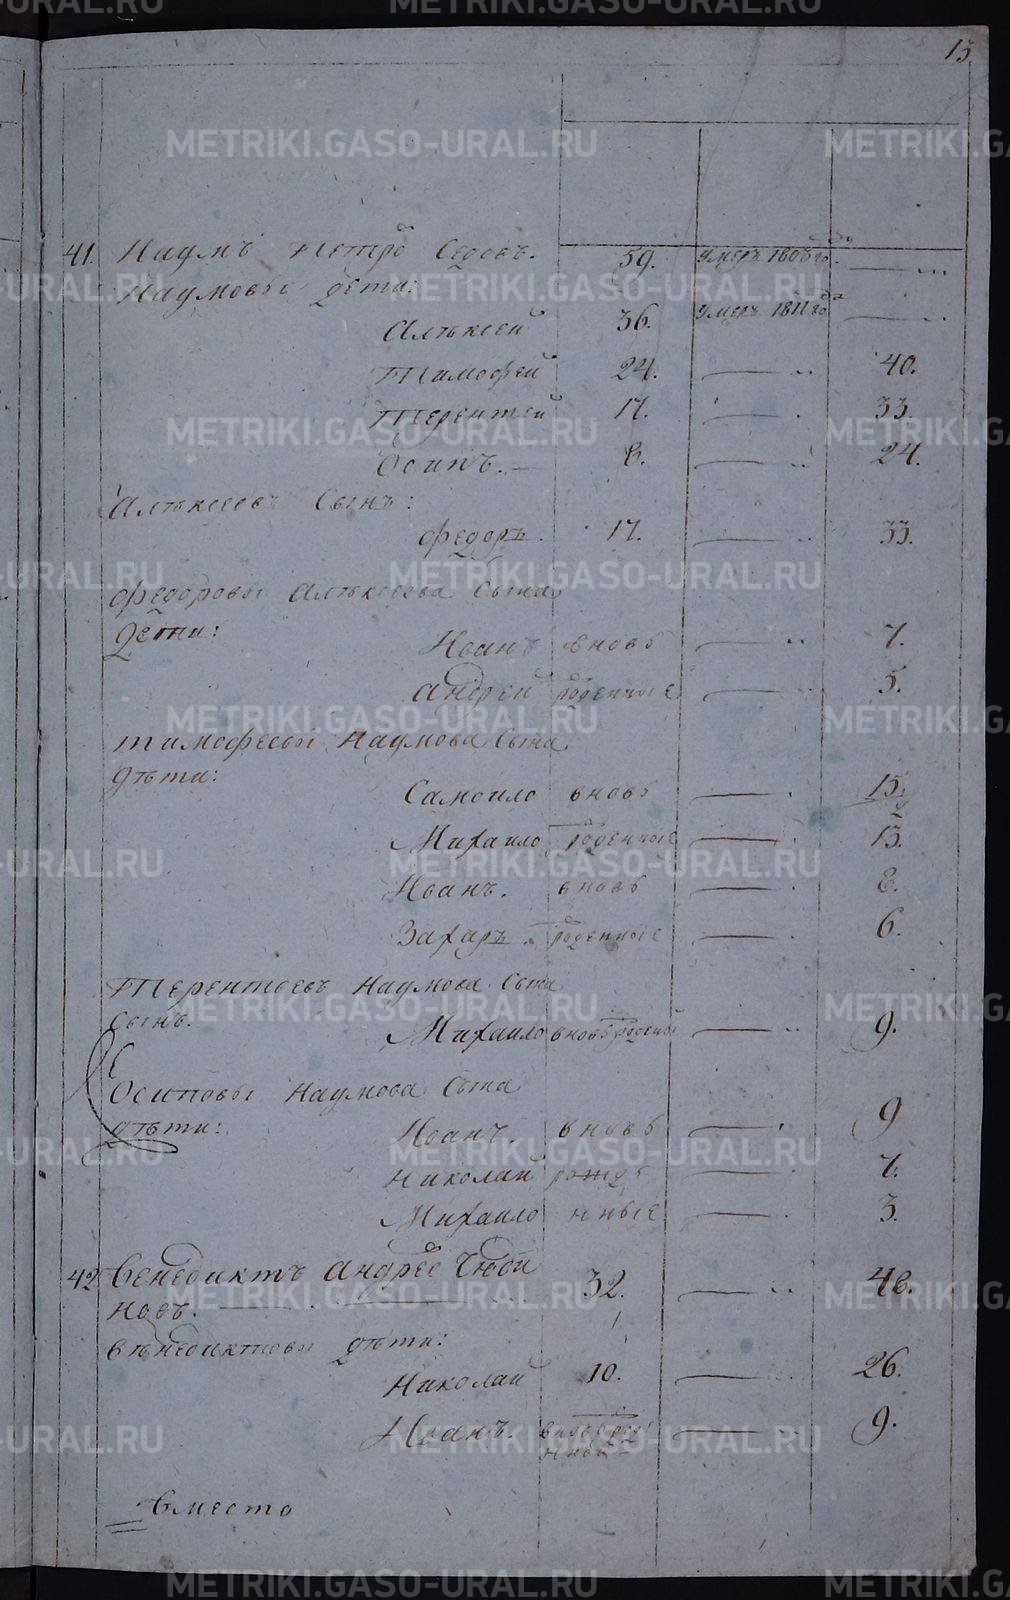 15
41. Наумъ Петро Седовъ. 59. умеръ 1805го.
Наумовы дети:
Алѣксей 36. умеръ 1811 года
Тимофей 24. 40.
Терентей 17. 33.
Осипъ. 8. 24.
Алѣксеевъ Сынъ:
Федоръ. 17. 33.
Федоровы Алѣксеева Сына
Дети:
Иванъ вновь 7.
Андрей роденные 5.
Тимофеевы Наумова Сына
дѣти:
Самоило вновь 15.
Михаило роденные 13.
Иванъ. вновь 8.
Захаръ. роденные 6.
Терентьевъ Наумова Сына
Сынъ.
Михаило вновь роденый 9.
Осиповы Наумова Сына
дѣти:
Иванъ. вновь 9
Николай рожде 7.
Михаило нные 3.
42. Венедиктъ Андрее
новъ. 32. 48.
Вѣнедиктовы дѣти:
Николай 10. 26.
Иванъ. 9.
Вместо
METRIKI.GASO-URAL.RU